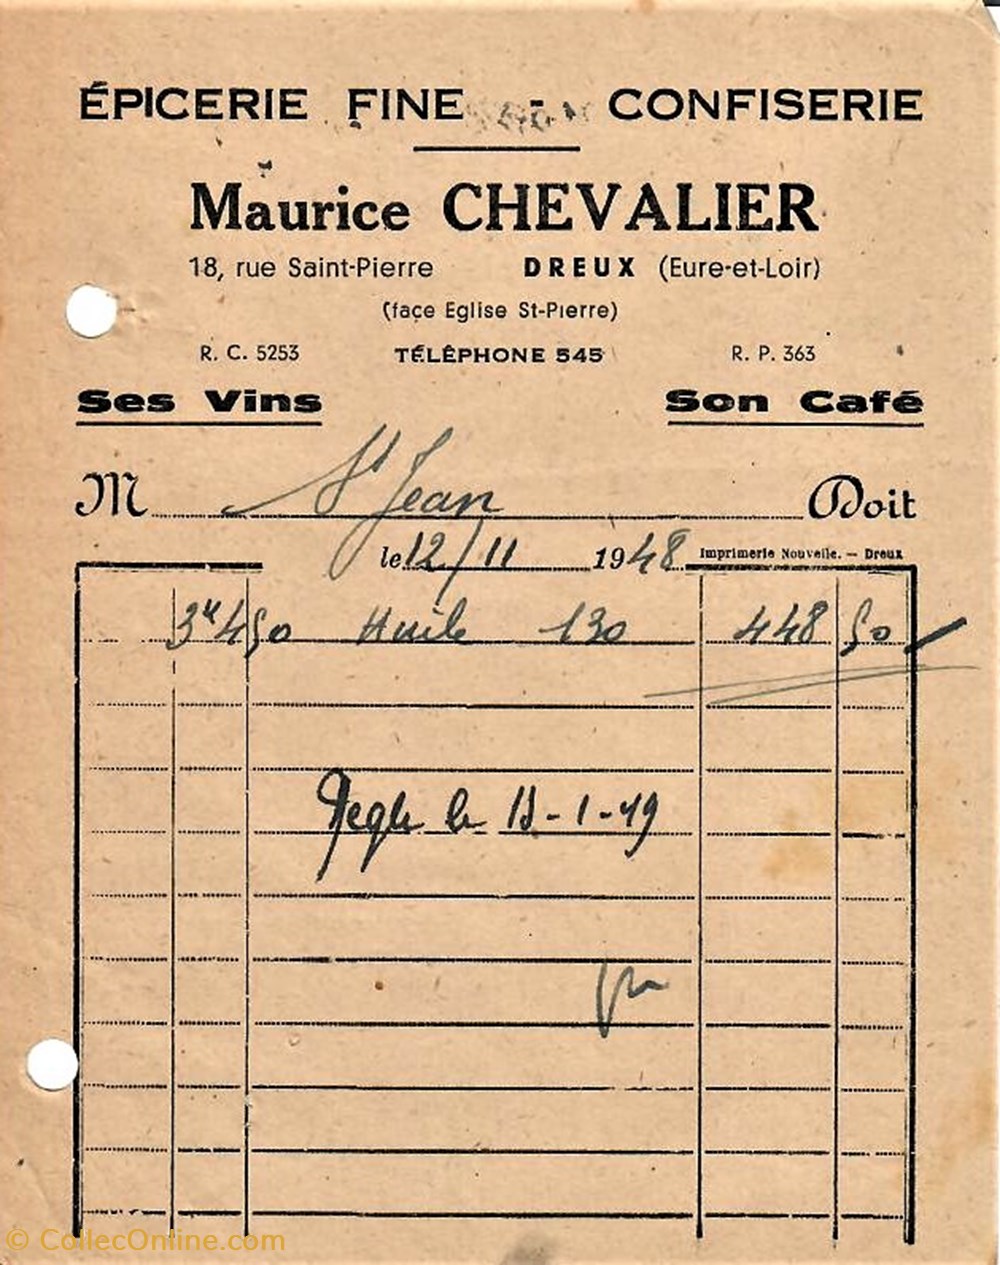 ÉPICERIE FINE - CONFISERIE
Maurice CHEVALIER
18, rue Saint-Pierre DREUX (Eure-et-Loir)
(façe Eglise St-Pierre)
R. C. 5253 TÉLÉPHONE 545 R. P. 363
Ses Vins Son Café
M St Jean Doit
le 12/11 1948 Imprimerie Nouvelle. - Dreux
3k 450 Huile 130 448 50
Réglé le -1-49
© CollecOnline.com